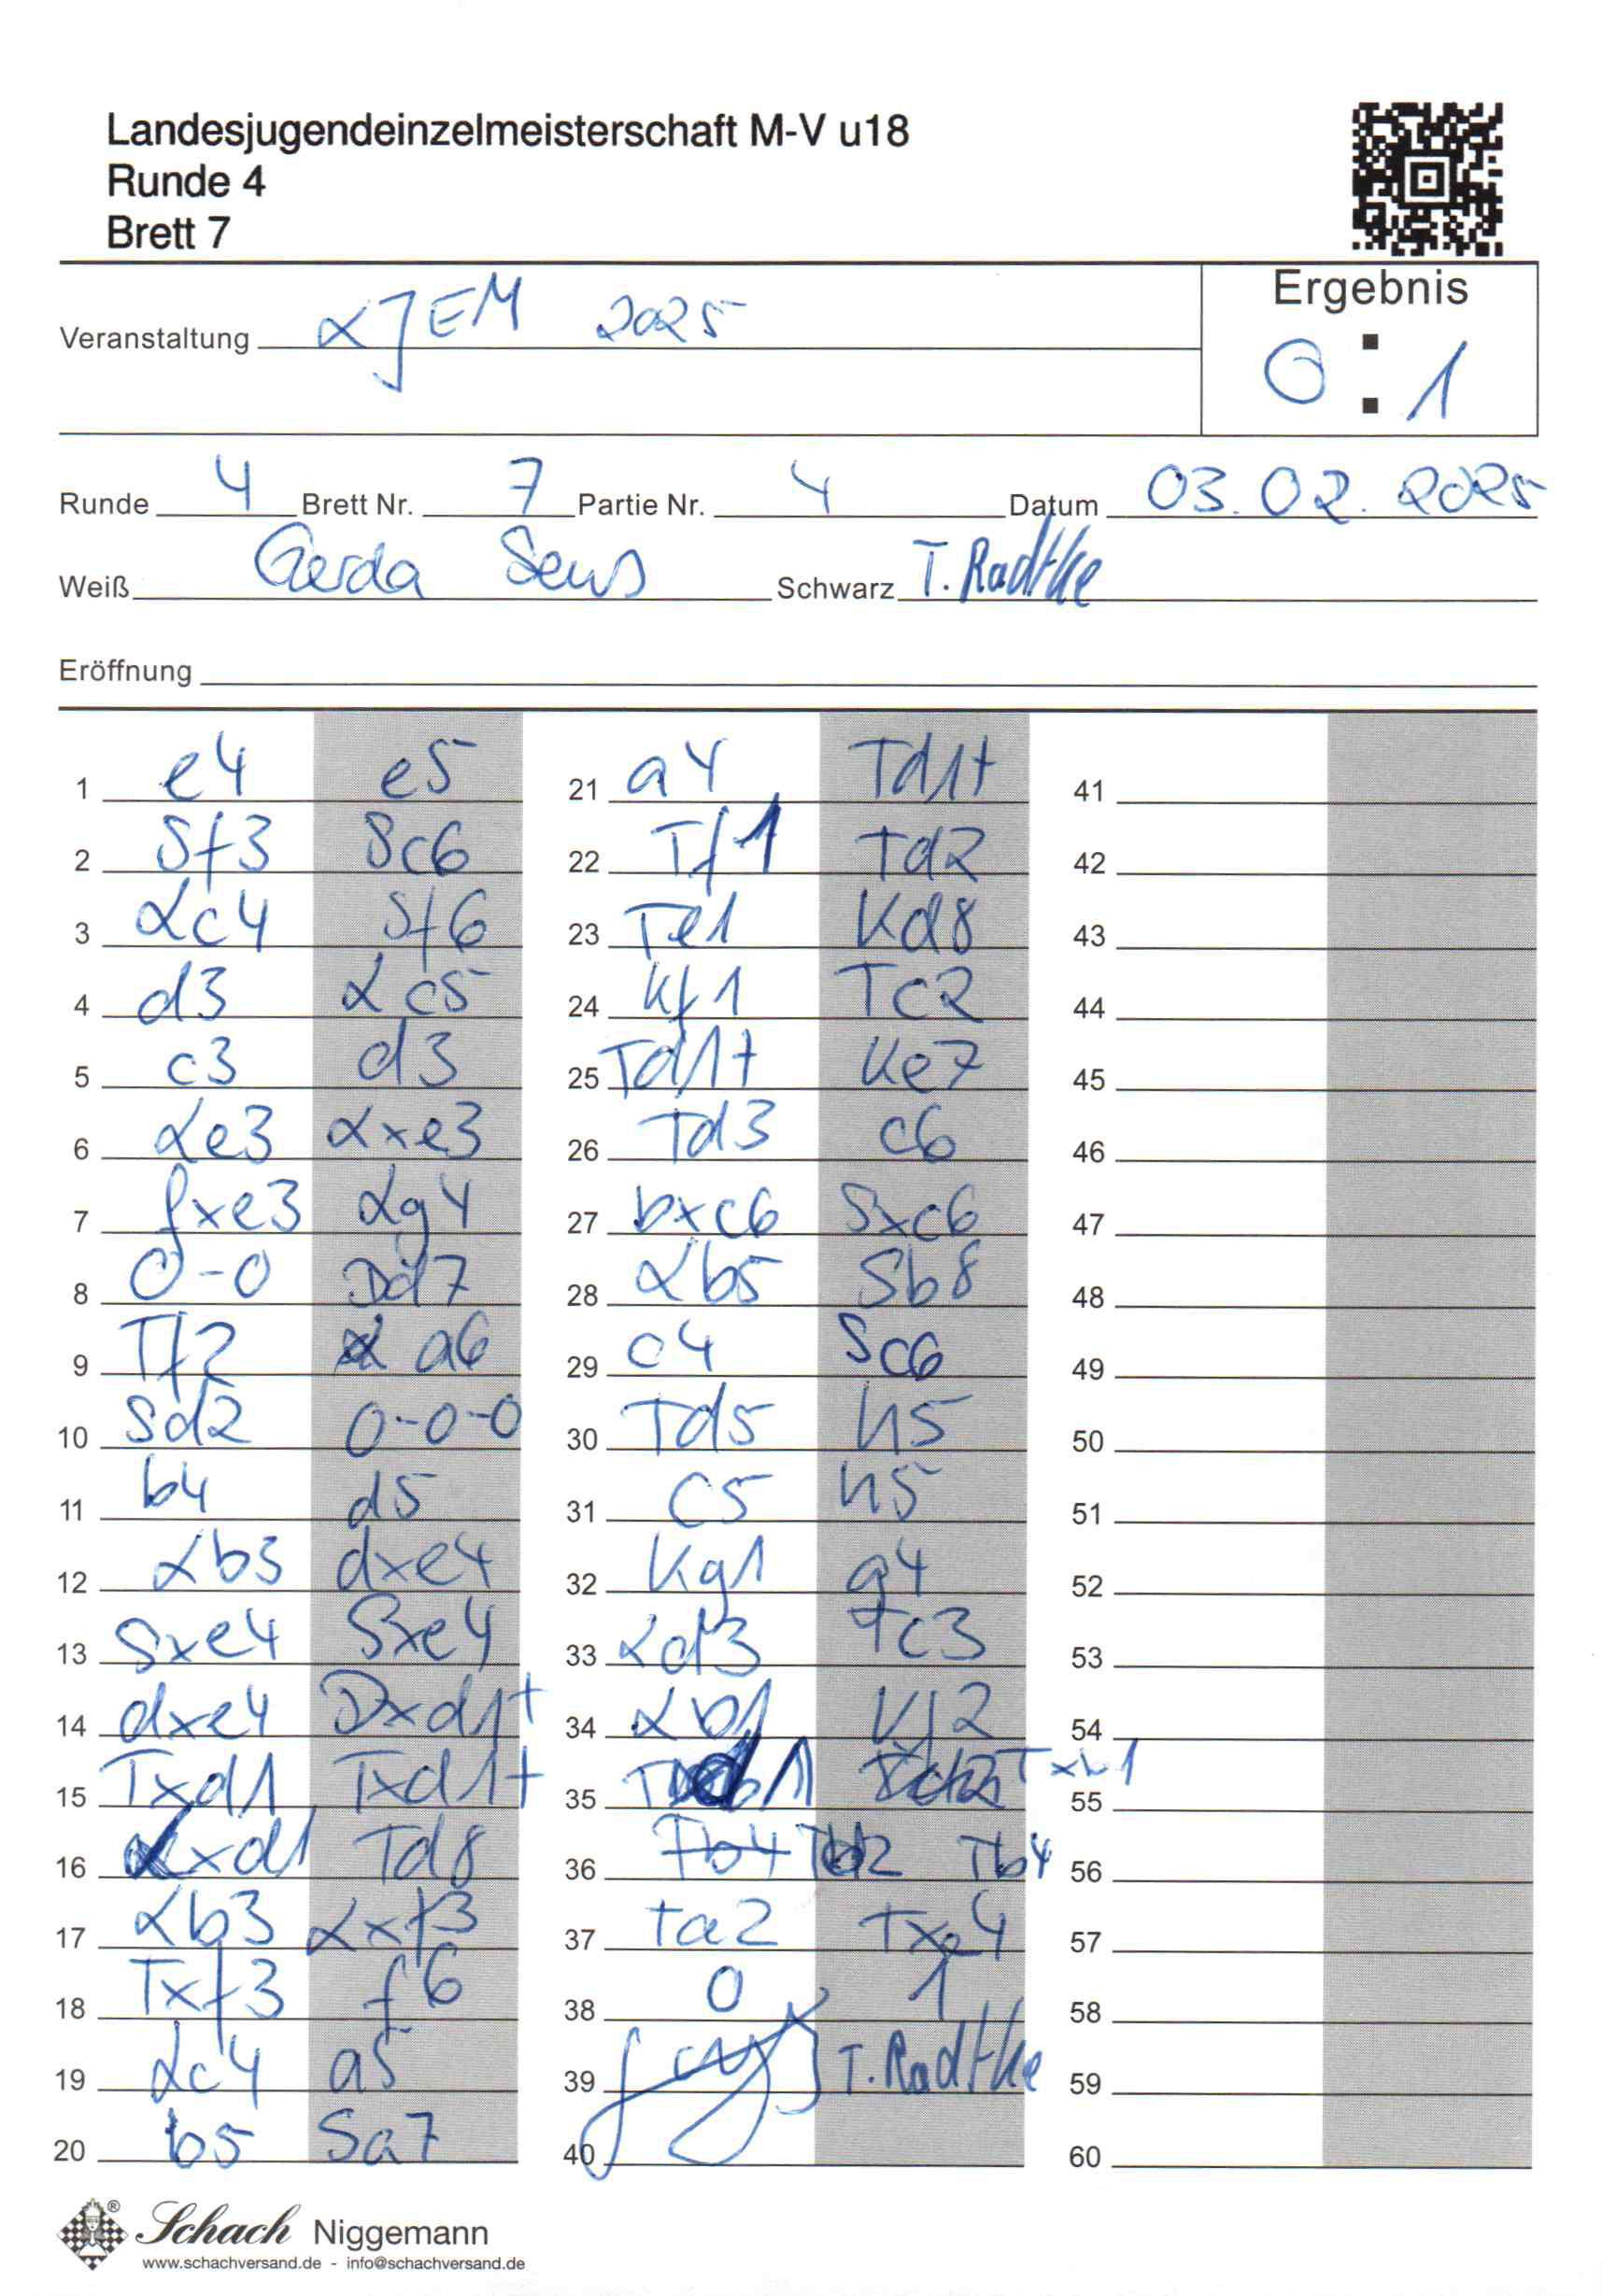 Landesjugendeinzelmeisterschaft M-V u18
Runde 4
Brett 7
Ergebnis
Veranstaltung LJEM 2025
0 : 1
Runde 4 Brett Nr. 7 Partie Nr. 4 Datum 03.02.2025
Weiß Gerda Schwarz T. Radtke
Eröffnung
1 e4 e5
2 Sf3 Sc6
3 Lc4 Sf6
4 d3 Lc5
5 c3 d3
6 Le3 Lxe3
7 fxe3 Lg4
8 0-0 Dd7
9 Tf2 a6
10 Sd2 0-0-0
11 b4 d5
12 Lb3 dxe4
13 Sxe4 Sxe4
14 dxe4 Dxd1+
15 Txd1 Txd1+
16 Lxd1 Td8
17 Lb3 Lxf3
18 Txf3 f6
19 Lc4 a5
20 b5 Sa7
21 a4 Td1+
22 Tf1 Td2
23 Te1 Kd8
24 Kf1 Tc2
25 Td1+ Ke7
26 Td3 c6
27 bxc6 Sxc6
28 Lb5 Sb8
29 c4 Sc6
30 Td5 h5
31 c5 h5
32 Kg1 g4
33 Ld3 Tc3
34 Lb1
35 Txb1
36 Tb4 Tb4
37 Ta2 Txe4
38 0 1
39 T. Radtke
40
41
42
43
44
45
46
47
48
49
50
51
52
53
54
55
56
57
58
59
60
Schach Niggemann
www.schachversand.de - info@schachversand.de